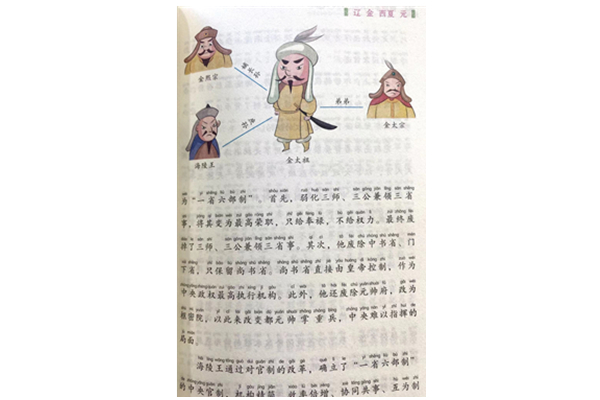 辽 金 西夏 元
金熙宗
嫡长孙
弟弟
金太宗
海陵王
庶孙
金太祖
为“一省六部制”。首先,弱化三师、三公兼领三省
事,将其变为最高荣职,只给奉禄,不给权力。最终废
掉了三师、三公兼领三省事。其次,他废除中书省、门
下省,只保留尚书省。尚书省直接由皇帝控制,作为
中央政权最高执行机构。此外,他还废除元帅府,改为
枢密院,以此来改变都元帅掌重兵,中央难以指挥的
局面。
海陵王通过对官制的改革,确立了“一省六部制”
的中央官制,机构精简,效率倍增,协同共事、互为制